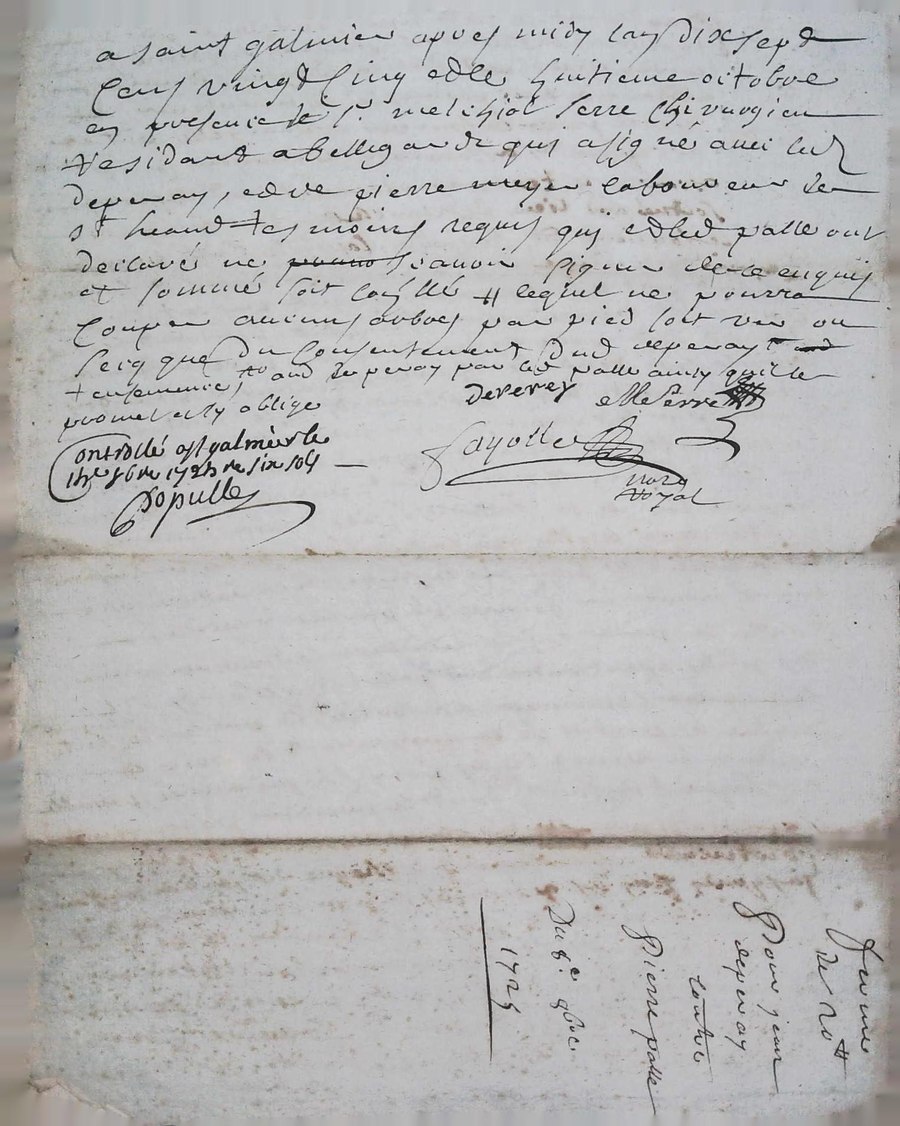 a saint galmier apres midy lan dix sept
cens vingt cinq et le huitieme octobre
en presence de Sr melchior Serre chirurgien
residant a bellegarde qui a signé avec led
deperay, et de pierre meyer laboureur de
st heand tesmoins requis qui et led palle ont
declaré ne scavoir signer de ce enquis
et sommé soit coñllé # lequel ne pourra
couper aucuns arbres par pied soit ver ou
secq que du consentement dud deperay
aud deperay par led palle ainsy quil le
promet et sy oblige
deperey
mserre
Controllé a st galmier le
8bre 1725 six sols
Fayolle
nore
royal
Populle
ferme
de 20 #
Pour jean
deperay
contre
Pierre palle
Du 8e 8bre
1725